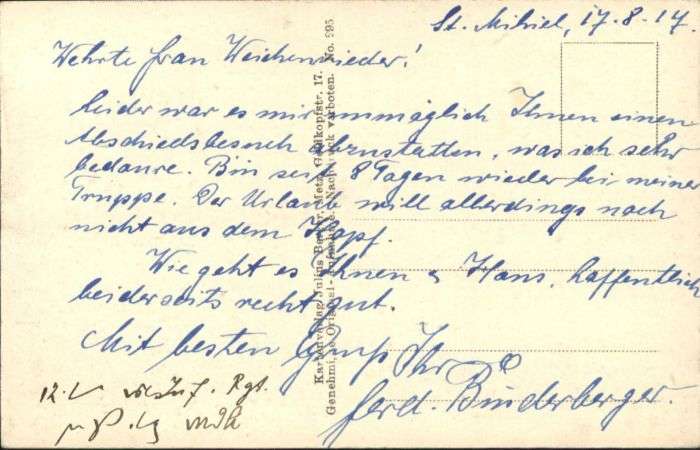 St. Mihiel, 17.8.17.
Wehrte Frau Weichenrieder!
Leider war es mir unmöglich Ihnen einen
Abschiedsbesuch abzustatten, was ich sehr
bedaure. Bin seit 8 Tagen wieder bei meiner
Truppe. Der Urlaub will allerdings noch
nicht aus dem Kopf.
Wie geht es Ihnen & Hans, hoffentlich
beiderseits recht gut.
Mit besten Gruß Ihr
Ferd. Binderberger.
12. Rgt.
Kartenverlag Julius Becker, Metz, Goldkopfstr. 17.
Genehmigte Original-Aufnahme. Nachdruck verboten. No. 295